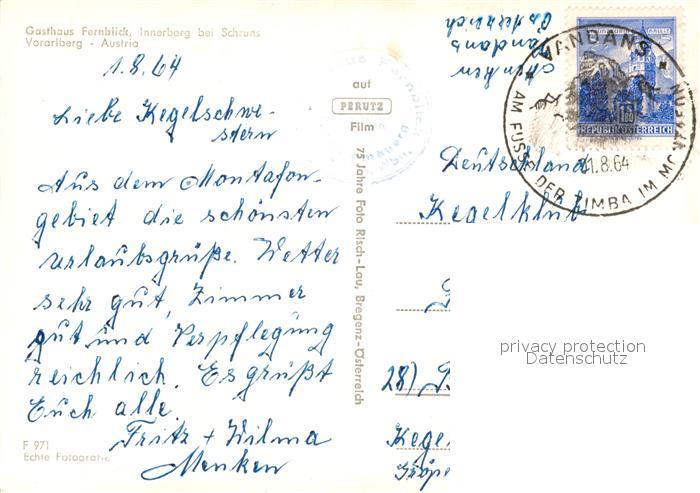 Gasthaus Fernblick, Innerberg bei Schruns
Vorarlberg - Austria
1.8.64
Liebe Kegelschwe-
stern
Aus dem Montafon-
gebiet die schönsten
Urlaubsgrüße. Wetter
sehr gut, Zimmer
gut und Verpflegung
reichlich. Es grüßt
Euch alle
Fritz + Wilma
Menken
F 971
Echte Fotografie
auf
PERUTZ
Film
75 Jahre Foto Risch-Lau, Bregenz-Österreich
Menken
Vandans
Österreich
VANDANS
AM FUSSE DER ZIMBA IM MONTAFON
1.8.64
REPUBLIK ÖSTERREICH
Deutschland
Kegelklub
28)
Kege
privacy protection
Datenschutz